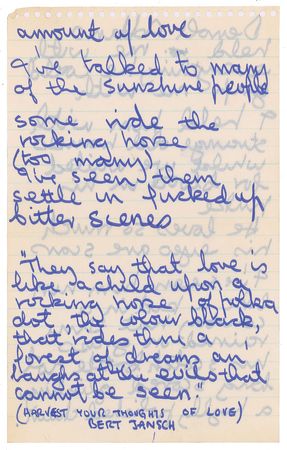 amount of love
I've talked to many
of the sunshine people
some ride the
rocking horse
(too many)
I've seen them
settle in fucked up
bitter scenes
"They say that love is
like a child upon a
rocking horse of polka
dot, the colour black,
that rides thru a
forest of dreams an
laughs at the evils that
cannot be seen."
(HARVEST YOUR THOUGHTS OF LOVE)
BERT JANSCH